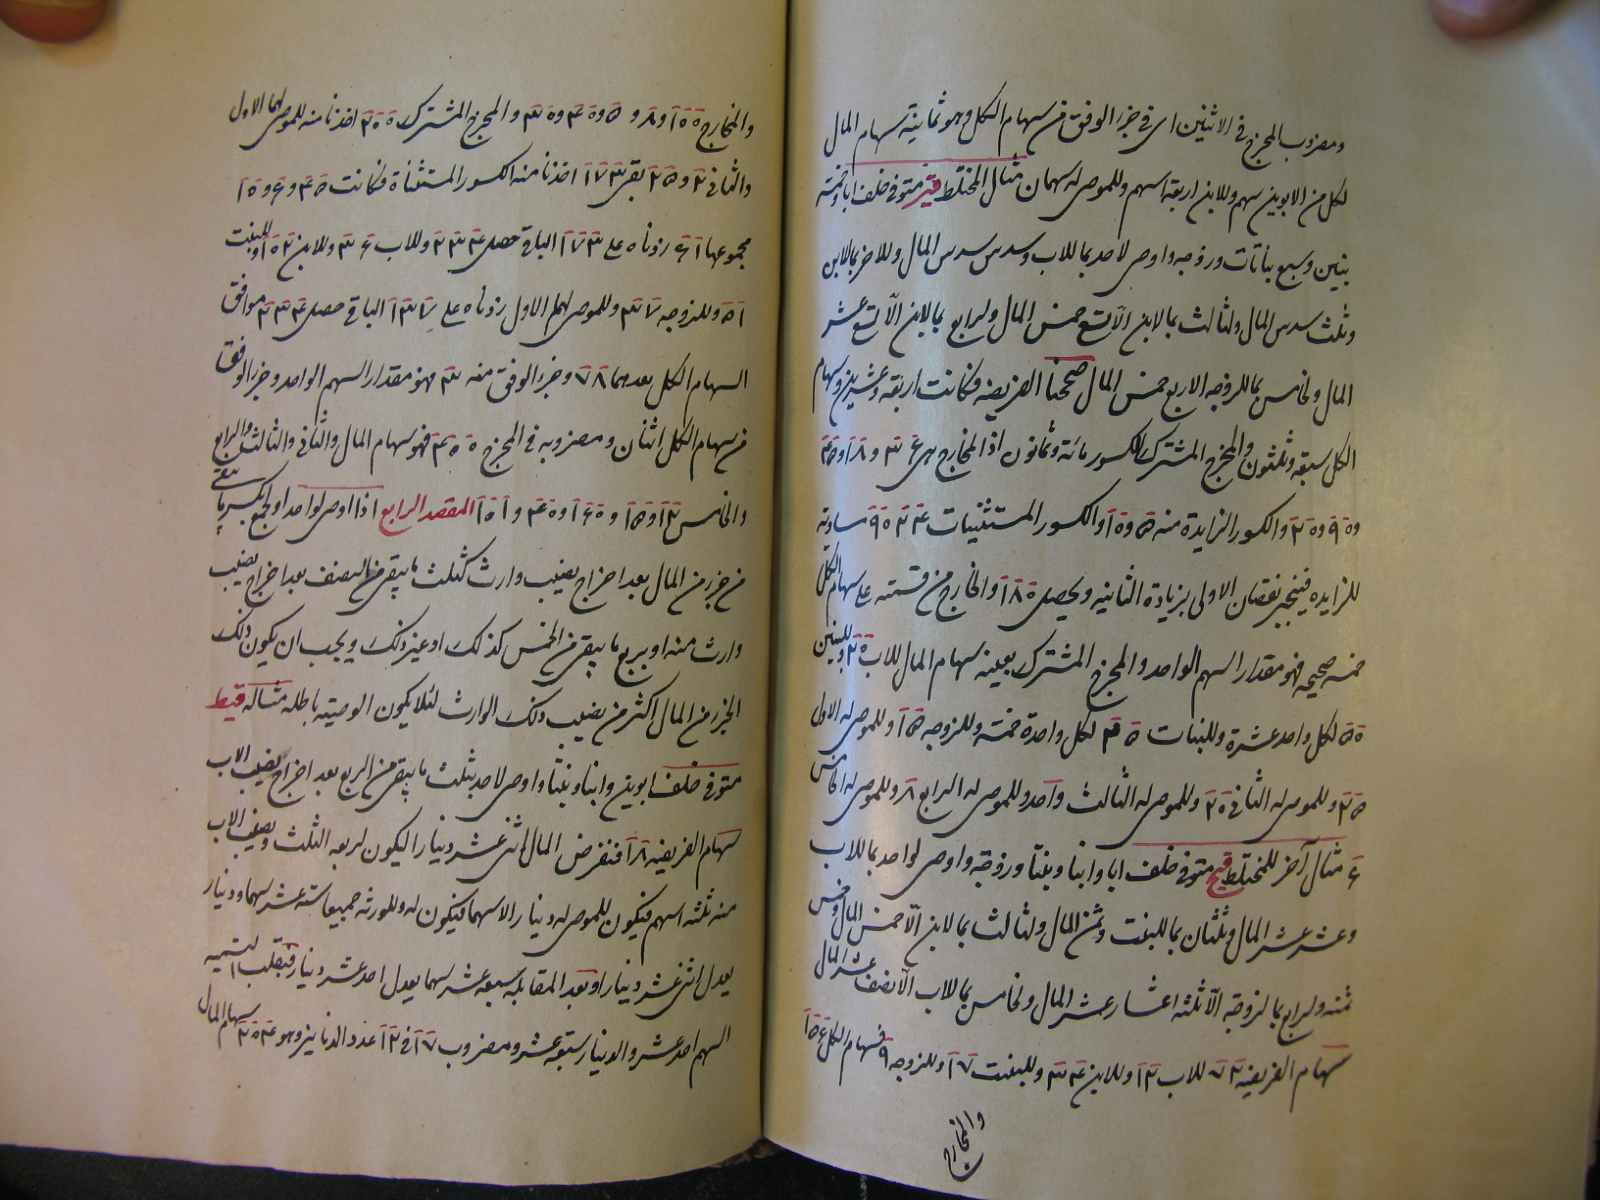 ومضروب المخرج فى الاثنين اى فى جزء الوفق من سهام الكل وهو ثمانية سهام المال
لكل من الابوين سهم وللابن اربعة اسهم وللموصى له سهمان مثال المختلط متوفى خلف ابا وخمسة
بنين وسبع بنات وزوجة واوصى لاحد بما للاب وسدس سدس المال وللاخر بما لابن
وثلث سدس المال ولثالث بما لابن الا تسع خمس المال ولرابع بما لابن الا تسع عشر
المال ولخامس بما للزوجة الا ربع خمس المال صححنا الفريضة فكانت اربعة وعشرين وسهام
الكل سبعة وثلثون والمخرج المشترك للكسور مائة وثمانون اذ المخارج هى ۳۶ و ۱۸ و ۴۵
و ۹۰ و ۲۰ والكسور الزايدة منه ۵ و ۱۰ والكسور المستثنيات ۴ ۲ ۹ مساوية
للزايدة فينجبر نقصان الاولى بزيادة الثانية ويحصل ۱۸۰ والخارج من قسمته على سهام الكل
خمسة صحيحة فهو مقدار السهم الواحد والمخرج المشترك بعينه سهام المال للاب ۲۰ وللبنين
۵۰ لكل واحد عشرة وللبنات ۳۵ لكل واحدة خمسة وللزوجة ۱۵ وللموصى له الاول
۲۵ وللموصى له الثانى ۲۰ وللموصى له الثالث واحد وللموصى له الرابع ۸ وللموصى له الخامس
۶ مثال آخر للمختلط متوفى خلف ابا وابنا وبنتا وزوجة واوصى لواحد بما للاب
وعشر عشر المال ولثان بما للبنت وثمن المال ولثالث بما لابن الا خمس المال وخمس
ثمنه ولرابع بما لزوجة الا ثلثة اعشار عشر المال ولخامس بما للاب الا نصف عشر المال
سهام الفريضة ۷۲ للاب ۱۲ وللابن ۳۴ وللبنت ۱۷ وللزوجة ۹ فسهام الكل ۱۵۶
والمخارج
والمخارج ۱۰۰ و ۸ و ۵ و ۴۰ و ۳۰ والمخرج المشترك ۲۰۰ اخذنا منه للموصى لهما الاول
والثانى ۲ و ۲۵ بقى ۱۷۳ اخذنا منه الكسور المستثناة فكانت ۴۵ و ۶ و ۱۰
مجموعها ۶۱ زدناه على ۱۷۳ الباقى حصل ۲۳۴ وللاب ۳۶ وللابن ۱۰۲ وللبنت
۵۱ وللزوجة ۲۷ وللموصى لهما الاول زدناه على الباقى حصل ۲۳۴ موافق
السهام الكل بعدهما ۷۸ وجزء الوفق منه ۳ فهو مقدار السهم الواحد وجزء الوفق
من سهام الكل اثنان ومضروبه فى المخرج ۴۰۰ فهو سهام المال والثانى والثالث والرابع
والخامس المقصد الرابع اذا اوصى لواحد او لجمع بكسر ما بقى
من جزء من المال بعد اخراج نصيب وارث كثلث ما يبقى من النصف بعد اخراج نصيب
وارث منه او بربع ما يبقى من الخمس كذلك او غير ذلك ويجب ان يكون ذلك
الجزء من المال اكثر من نصيب ذلك الوارث لئلا يكون الوصية باطلة مثاله
متوفى خلف ابوين وابنا وبنتا واوصى لاحد بثلث ما يبقى من الربع بعد اخراج نصيب الاب
سهام الفريضة ۱۸ فنفرض المال اثنى عشر دينارا ليكون لربعه الثلث ونصيب الاب
منه ثلثة اسهم فيكون للموصى له دينار الا سهما فيكون له وللورثة جميعا ستة عشر سهما ودينار
يعدل اثنى عشر دينارا وبعد المقابلة سبعة عشر سهما يعدل احد عشر دينارا فبقلب التسمية
السهم احد عشر والدينار سبعة عشر ومضروب ۱۷ فى ۱۲ عدد الدنانير وهو ۲۰۴ سهام المال